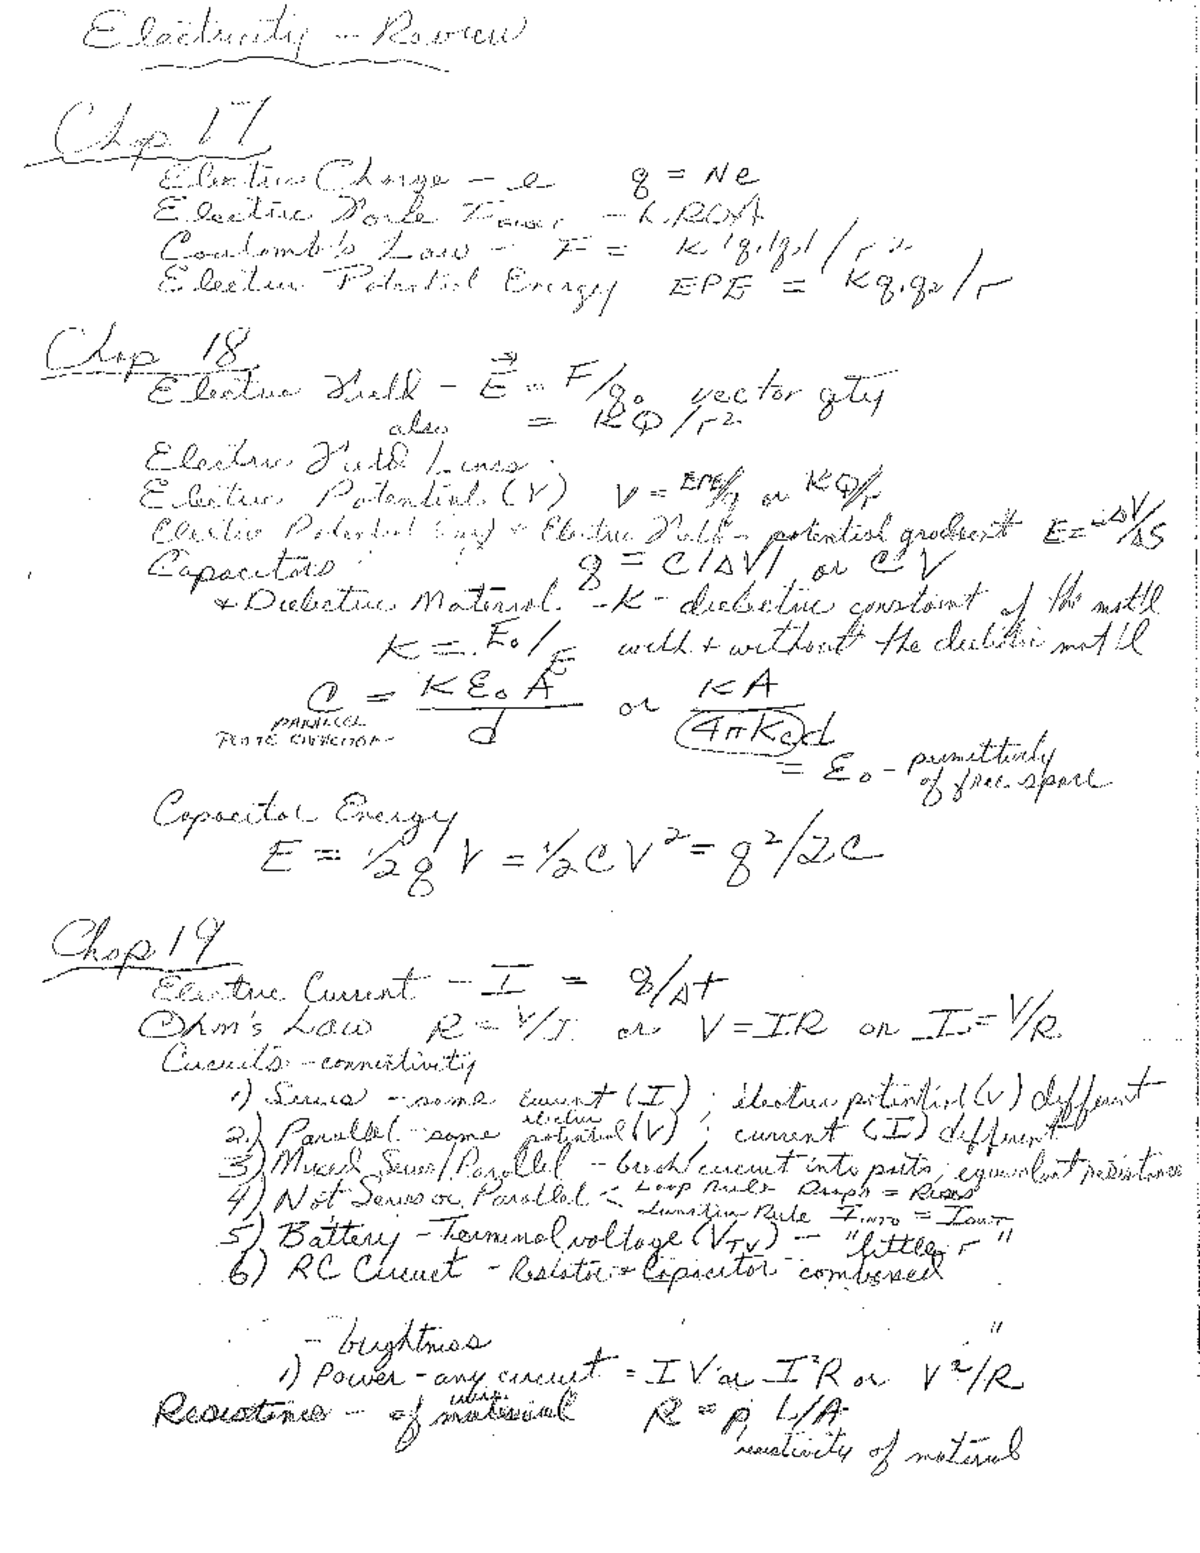 Electricity - Review
Chap 17
Electric Charge - e q = Ne
Electric Force
Coulomb's Law - F = K |q1||q2| / r2
Electric Potential Energy EPE = Kq1q2/r
Chap 18
Electric Field - E = F/q0 vector qty
also = KQ/r2
Electric Field Lines
Electric Potential (V) V = EPE/q or KQ/r
Electric Potential & Electric Field - potential gradient E = -ΔV/ΔS
Capacitors q = C|ΔV| or CV
+ Dielectric Material - K - dielectric constant of the mat'l
K = E0/E with + without the dielectric mat'l
C = Kε0A/d or KA/4πKcd
PARALLEL PLATE CAPACITOR
= ε0 - permittivity of free space
Capacitor Energy
E = 1/2 qV = 1/2 CV2 = q2/2C
Chap 19
Electric Current - I = q/Δt
Ohm's Law R = V/I or V = IR or I = V/R
Circuits - connectivity
1) Series - same current (I) ; electric potential (V) different
2) Parallel - same electric potential (V) ; current (I) different
3) Mixed Series/Parallel - break circuit into parts; equivalent resistance
4) Not Series or Parallel - Loop Rule Drops = Rises
Junction Rule Iinto = Iout
5) Battery - Terminal voltage (VTV) - "little r"
6) RC Circuit - Resistor + Capacitor combined
- brightness "
1) Power - any circuit = IV or I2R or V2/R
Resistance - of material R = ρ L/A
resistivity of material